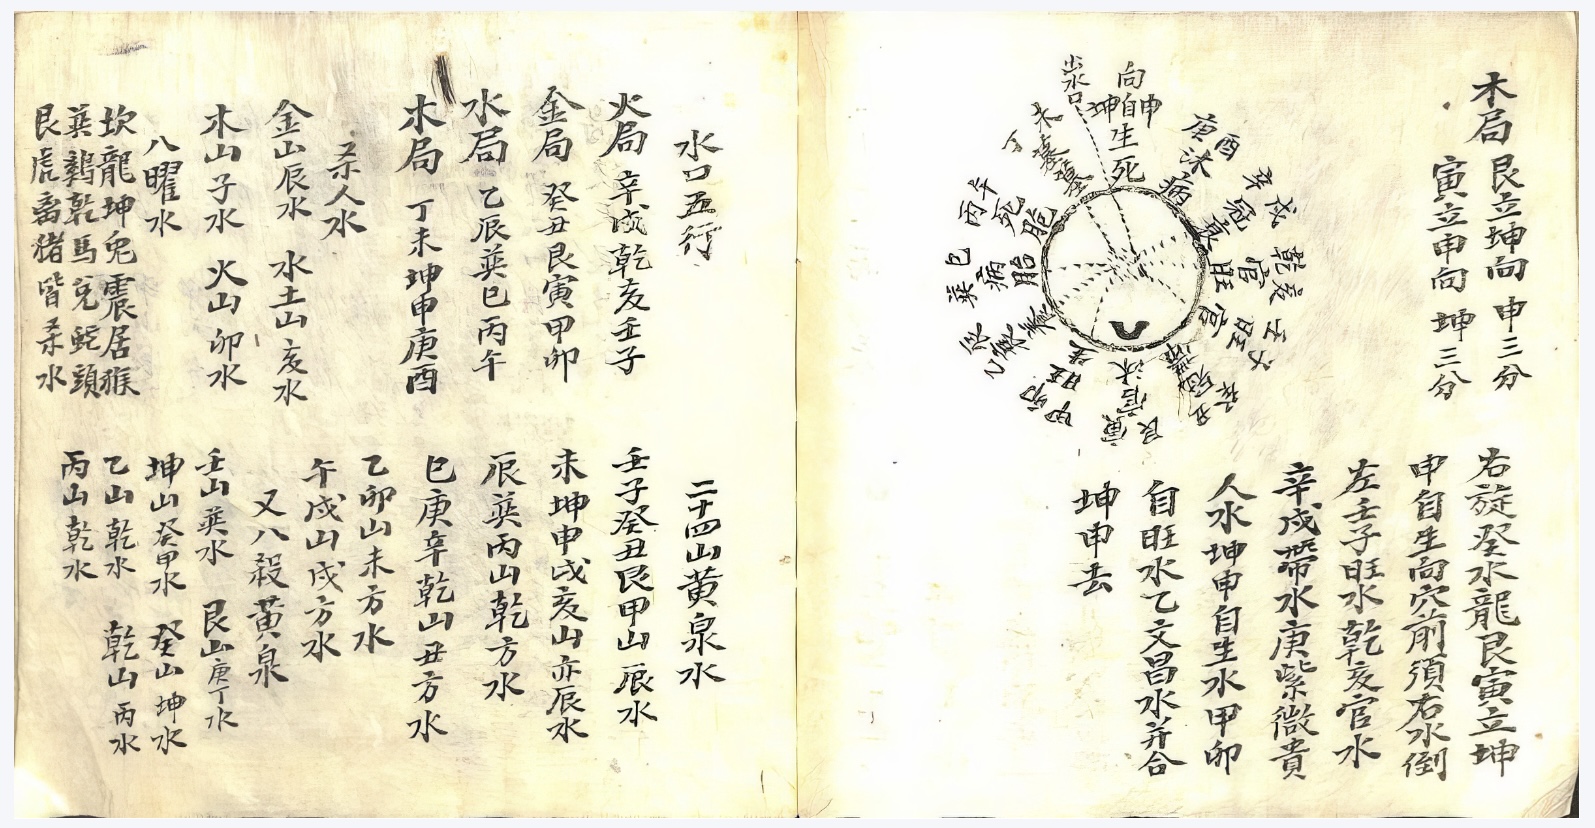 木局 艮立坤向 申三分
寅立申向 坤三分
右旋癸水龍艮寅立坤
申自生向穴前須右水倒
左壬子旺水乾亥官水
辛戌帶水庚紫微貴
人水坤申自生水甲卯
自旺水乙文昌水并合
坤申去
向自生死
坤申
庚酉
沐病
辛戌
冠衰
乾亥
官旺
壬子
旺官
艮寅
甲卯
巽巳
病胎
丙午
死胞
水口五行
火局 辛戌乾亥壬子
金局 癸丑艮寅甲卯
水局 乙辰巽巳丙午
木局 丁未坤申庚酉
杀人水
金山辰水 水土山亥水
木山子水 火山卯水
八曜水
坎龍坤兔震居猴
巽鷄乾馬兌蛇頭
艮虎离猪皆杀水
二十四山黃泉水
壬子癸丑艮甲山辰水
未坤申戌亥山亦辰水
辰巽丙山乾方水
巳庚辛乾山丑方水
乙卯山未方水
午戌山戌方水
又八殺黃泉
壬山巽水 艮山庚丁水
坤山癸甲水 癸山坤水
乙山乾水 乾山丙水
丙山乾水